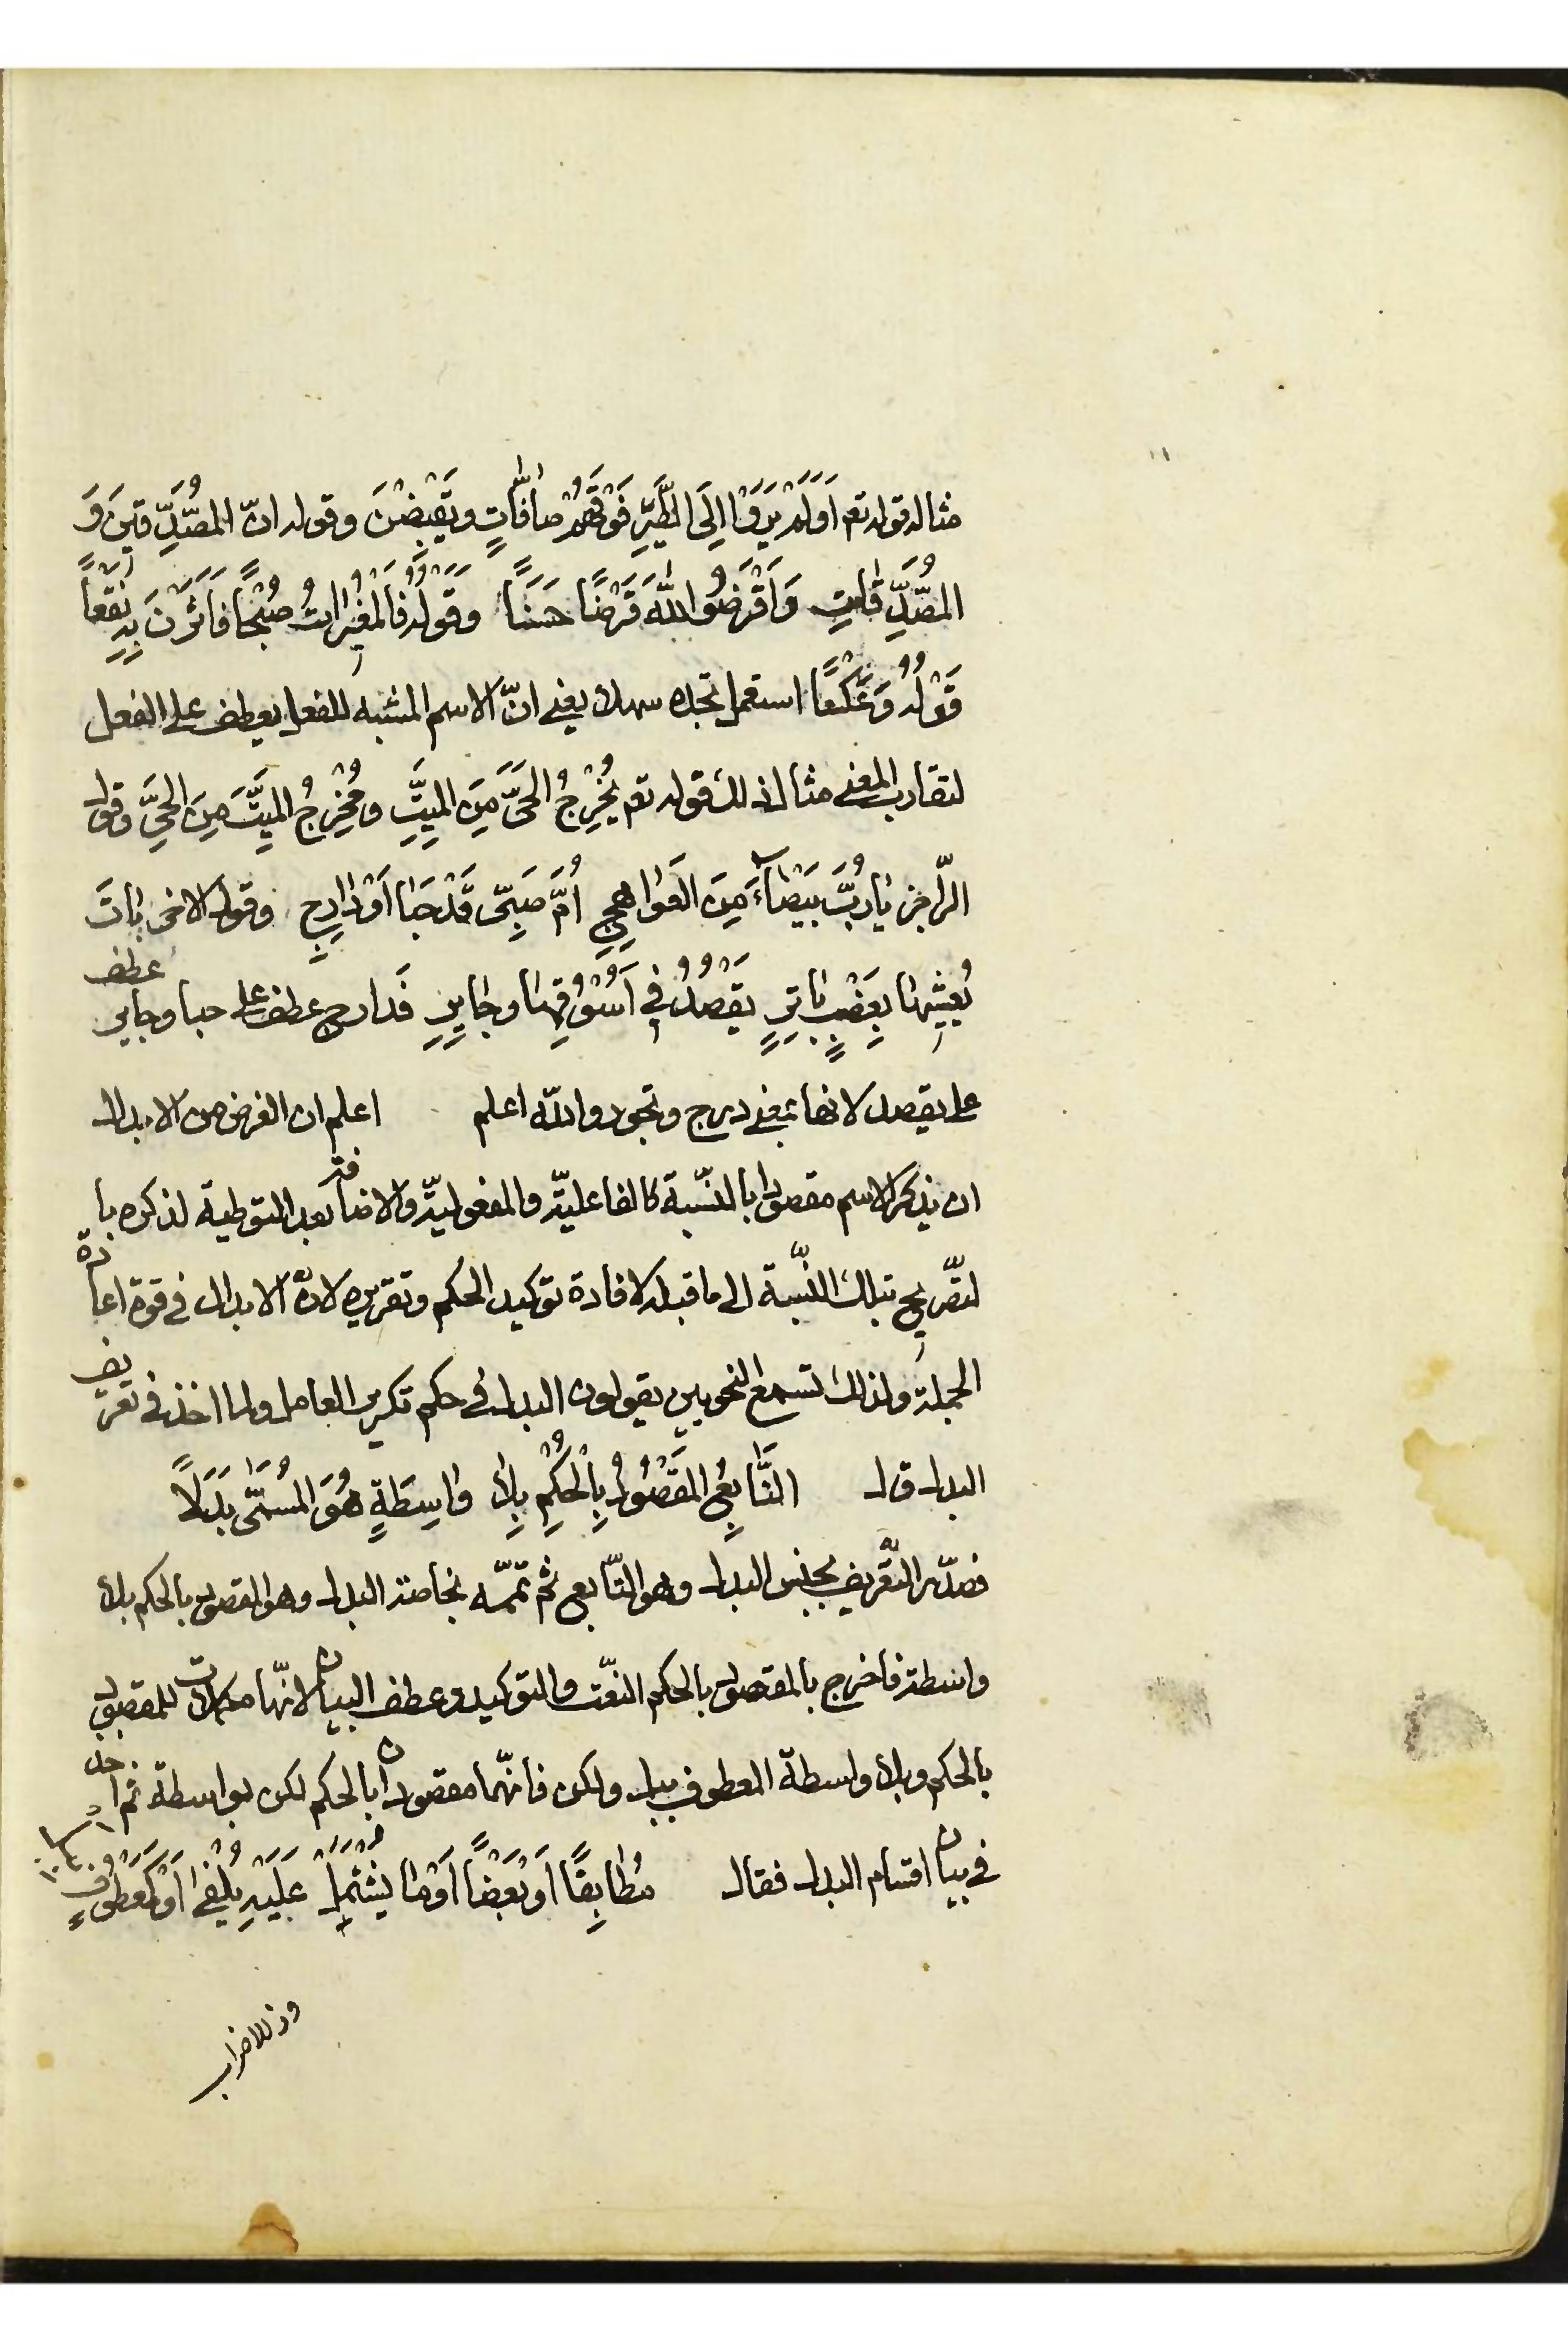 مثاله قوله تع اَوَلَمْ يَرَوْا اِلَى الطَّيْرِ فَوْقَهُمْ صٰافّٰاتٍ وَيَقْبِضْنَ وقوله انّ المُصَّدِّقينَ وَ
المُصَّدِّقٰاتِ وَاَقْرَضُوا اللّٰهَ قَرْضًا حَسَنًا وَقَوْلُهُ فَالْمُغيرٰاتُ صُبْحًا فَاَثَرْنَ بِهِ نَقْعاً
قَوْلُهُ وَعَكْسًا استعمل تجده سهلا يعنى انّ الاسم المشبه للفعل يعطف على الفعل
لتقارب المعنى مثال ذلك قوله تع يُخْرِجُ الحَىَّ مِنَ المَيِّتِ ومُخْرِجُ المَيِّتَ مِنَ الحَىِّ وقول
الرّاجز يٰا رُبَّ بَيْضٰاءَ مِنَ العَوٰاهِجِ اُمَّ صَبِىّ قَدْ حَبٰا اَوْ دٰارِجٍ وقول الاخر بٰاتَ
يُعَشّيهٰا بِعَضْبٍ بٰاتِرٍ يَقْصُدُ فى اَسْؤُقِهٰا وجٰايِرٍ فَدارج عطف على حبا وجاير عطف
على يقصد لانها بمعنى درج وتجور واللّه اعلم اعلم ان الغرض من الابدال
ان يذكر الاسم مقصودا بالنّسبة كالفاعليّة والمفعوليّة والاضافة بعد التوطية لذكره با
لتّصريح بتلك النّسبة الى ما قبله لافادة توكيد الحكم وتقريره لانّ الابدال فى قوة اعادة
الجملة ولذلك تسمع النحويين يقولون البدل فى حكم تكرير العامل ولما اخذ فى تعريف
البدل قال التَّٰابِعُ المَقْصُودُ بِالْحُكْمِ بِلاٰ وٰاسِطَةٍ هُوَ المُسَمّٰى بَدَلًا
فصدّر التّعريف بجنس البدل وهو التّابع ثم تمّمه بخاصة البدل وهو المقصود بالحكم بلا
واسطة فاخرج بالمقصود بالحكم النعّت والتوكيد وعطف البيان لانّها مكملات للمقصود
بالحكم وبلا واسطة المعطوف ببل ولكن فانّهما مقصودان بالحكم لكن بواسطة ثم اخذ
فى بيان اقسام البدل فقال مُطٰابِقًا اَوْ بَعْضًا اَوْ مٰا يَشْتَمِلْ عَلَيْهِ يُلْفٰى اَوْ كَمَعْطُوفٍ بِبَلْ
وذ للاضراب